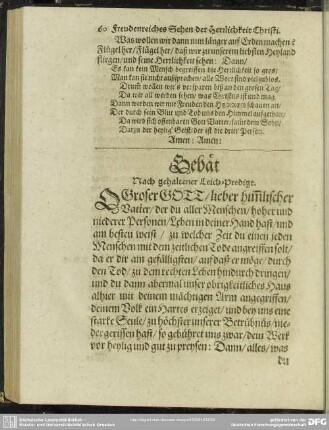 60 Freudenreiches Sehen der Herrlichkeit Christi.
Was wollen wir dann nun länger auf Erden machen?
Flügel her/ Flügel her/ daß wir zu unserem liebsten Heyland
fliegen/ und seine Herrlichkeit sehen: Dann/
Es kan kein Mensch begreiffen die Herrlichkeit so gros/
Man kan sie nicht aussprechen/ alle Wort sind viel zu blos.
Drumb wollen wir's versparen biß an den grossen Tag/
Da wir all werden sehen/ was Christus ist und mag.
Dann werden wir mit Freuden den Herren schauen an/
Der durch sein Blut und Tod uns den Himmel aufgethan/
Da wird sich offenbaren Gott Vatter/ samt dem Sohn/
Darzu der heylig' Geist/ der ist die dritt' Person.
Amen: Amen:
Gebät
Nach gehaltener Leich-Predigt.
O Groser GOTT/ lieber himmlischer
Vatter/ der du aller Menschen/ hoher und
niederer Personen/ Leben in deiner Hand hast/ und
am besten weist/ zu welcher Zeit du einen jeden
Menschen mit dem zeitlichen Tode angreiffen solt/
da er dir am gefälligsten/ auf daß er möge/ durch
den Tod/ zu dem rechten Leben hindurch drungen/
und du dann abermal unser obrigkeitliches Haus
alhier mit deinem mächtigen Arm angegriffen/
deinem Volk ein Hartes erzeiget/ und bey uns eine
starke Seule/ zu höchster unserer Betrübnüs/ nie-
dergerissen hast/ so gebühret uns zwar/ dein Werk
vor heylig und gut zu preysen: Dann/ alles/ was
du